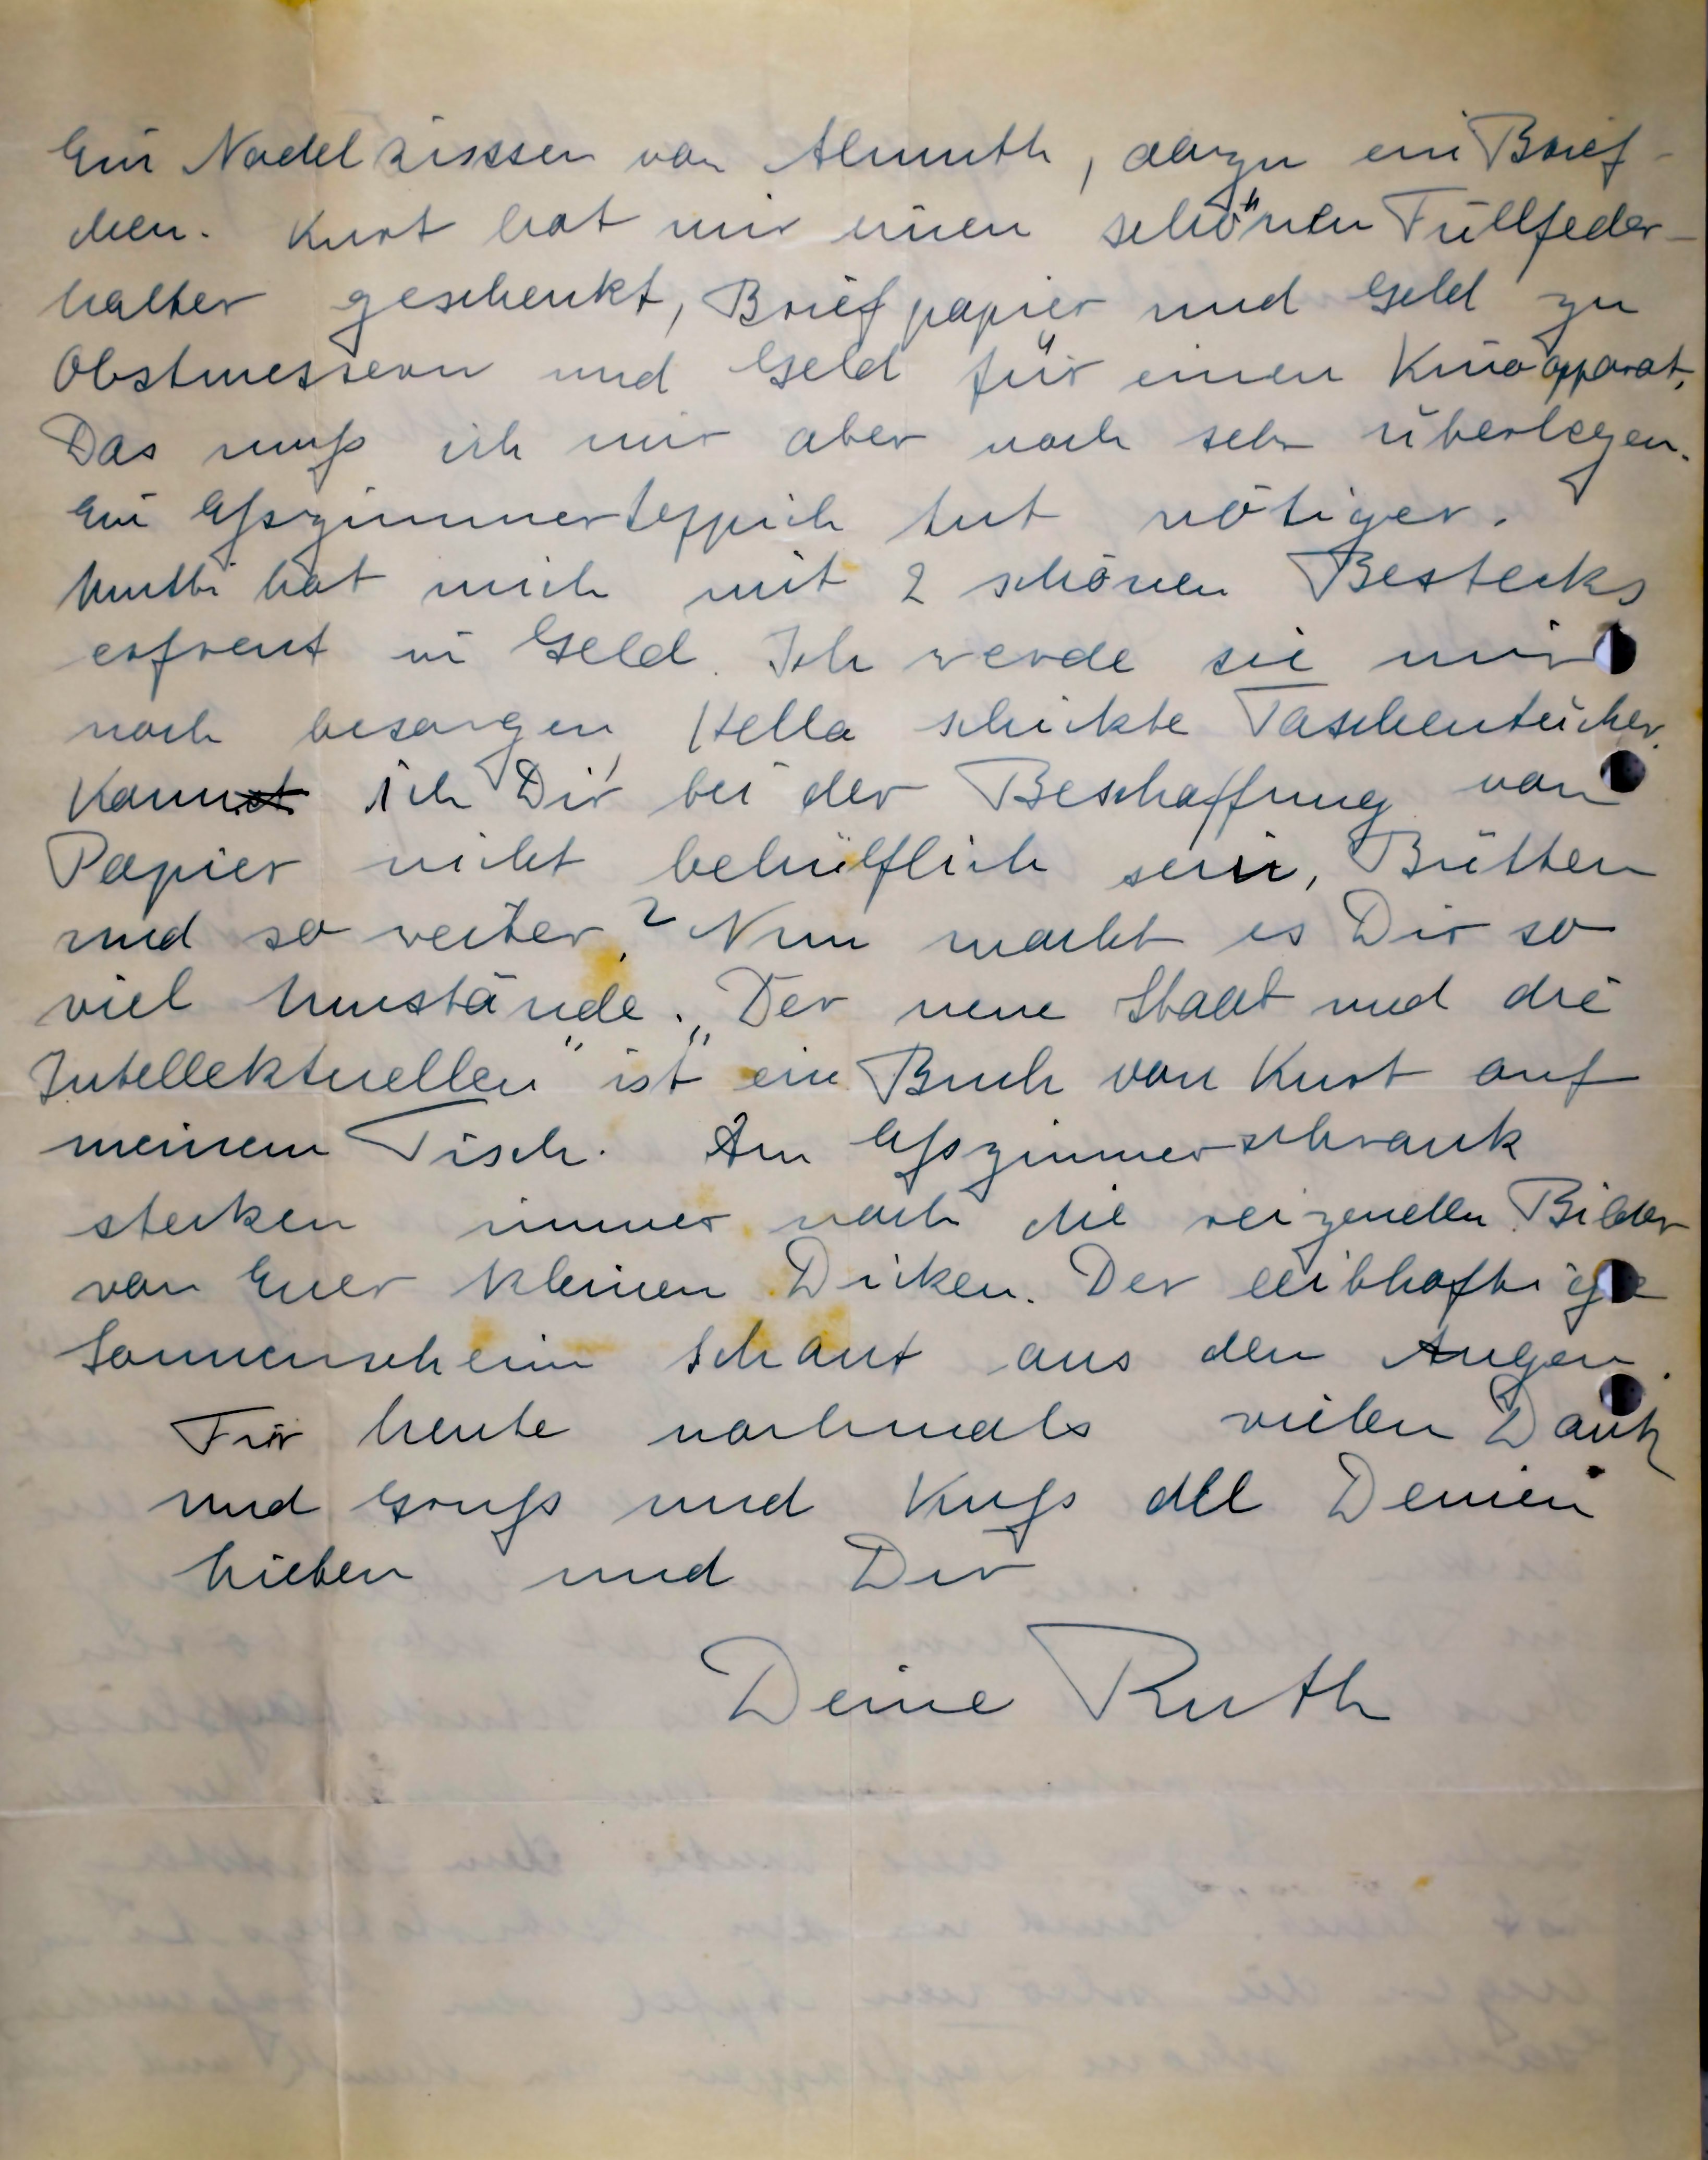 Ein Nadelkissen von Almuth, dazu ein Brief-
chen. Kurt hat mir einen schönen Füllfeder-
halter geschenkt, Briefpapier und Geld zu
Obstmessern und Geld für einen Kinoapparat.
Das muß ich mir aber noch sehr überlegen.
Ein Eßzimmerteppich tut nötiger.
Mutti hat mich mit 2 schönen Bestecks
erfreut in Geld. Ich werde sie mir
noch besorgen, Hella schickte Taschentücher.
Kann ich Dir bei der Beschaffung von
Papier nicht behülflich sein, Bütten
und so weiter? Nun macht es Dir so
viel Umstände. „Der neue Staat und die
Intellektuellen" ist ein Buch von Kurt auf
meinem Tisch. Am Eßzimmerschrank
stecken immer noch die reizenden Bilder
von Euer kleinen Dicken. Der leibhaftige
Sonnenschein schaut aus den Augen.
Für heute nochmals vielen Dank
und Gruß und Kuß all Deinen
Lieben und Dir
Deine Ruth